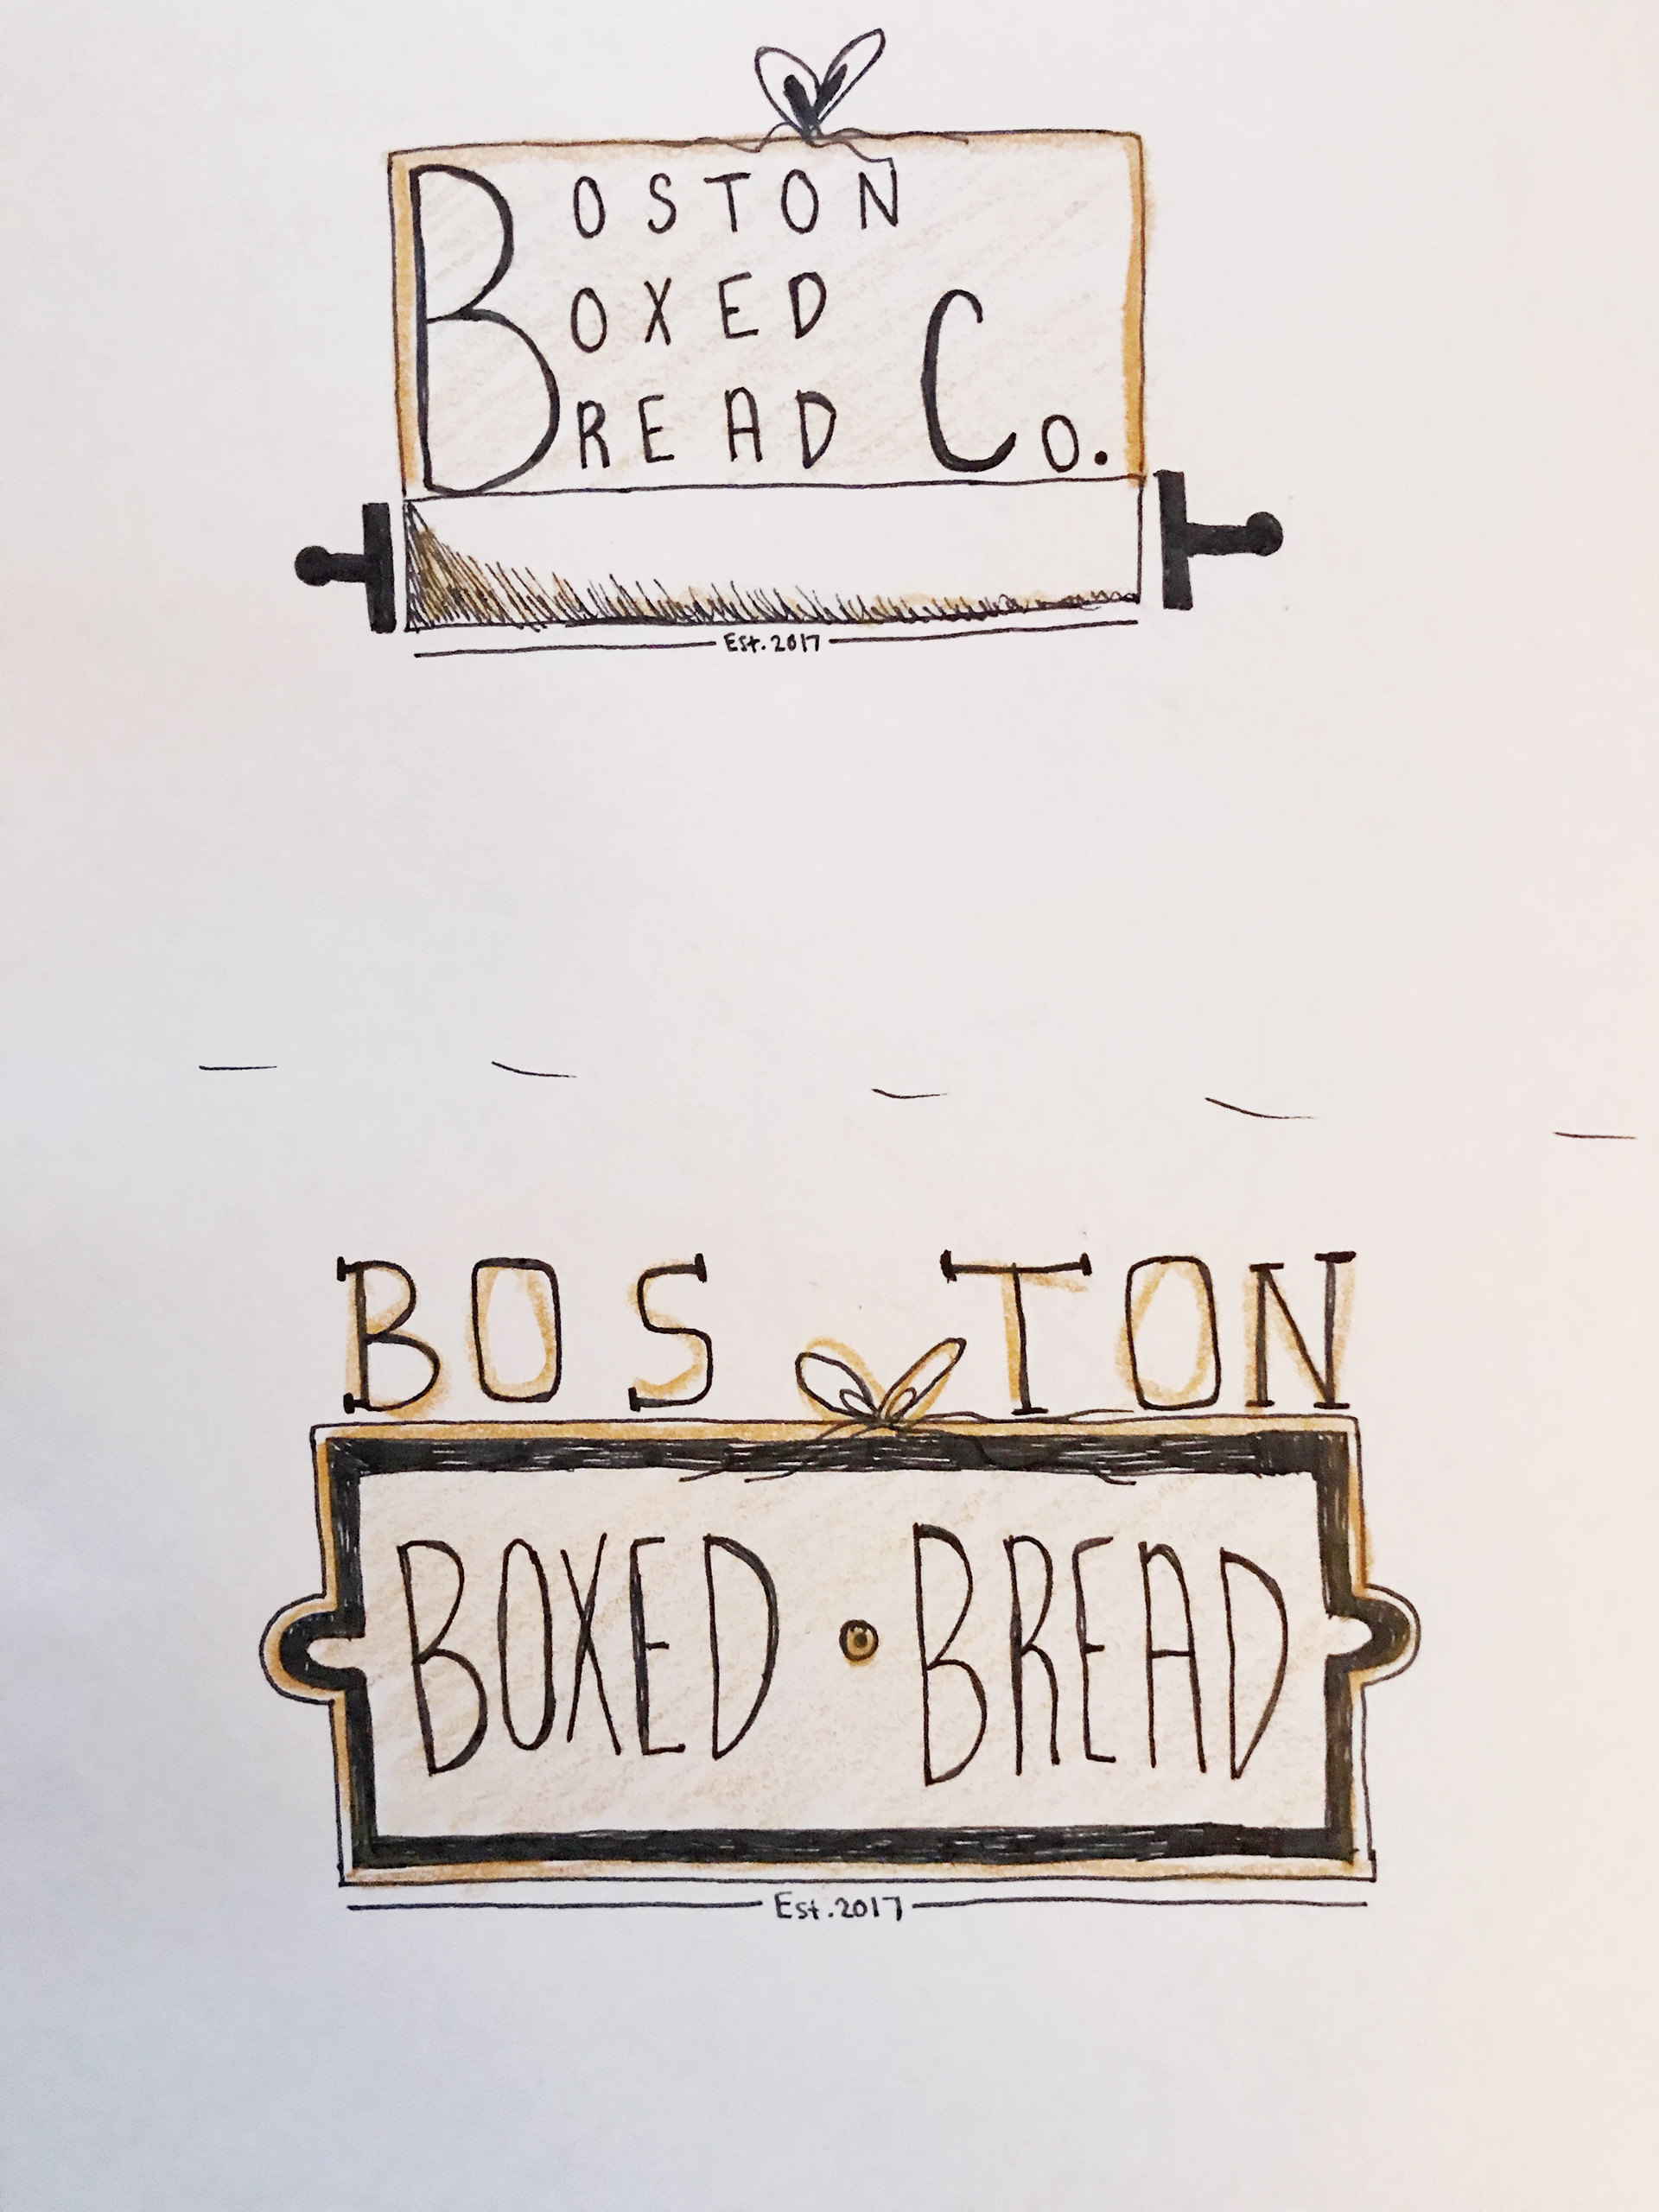 BOSTON
BOXED
BREAD Co.
Est. 2017
BOSTON
BOXED • BREAD
Est. 2017